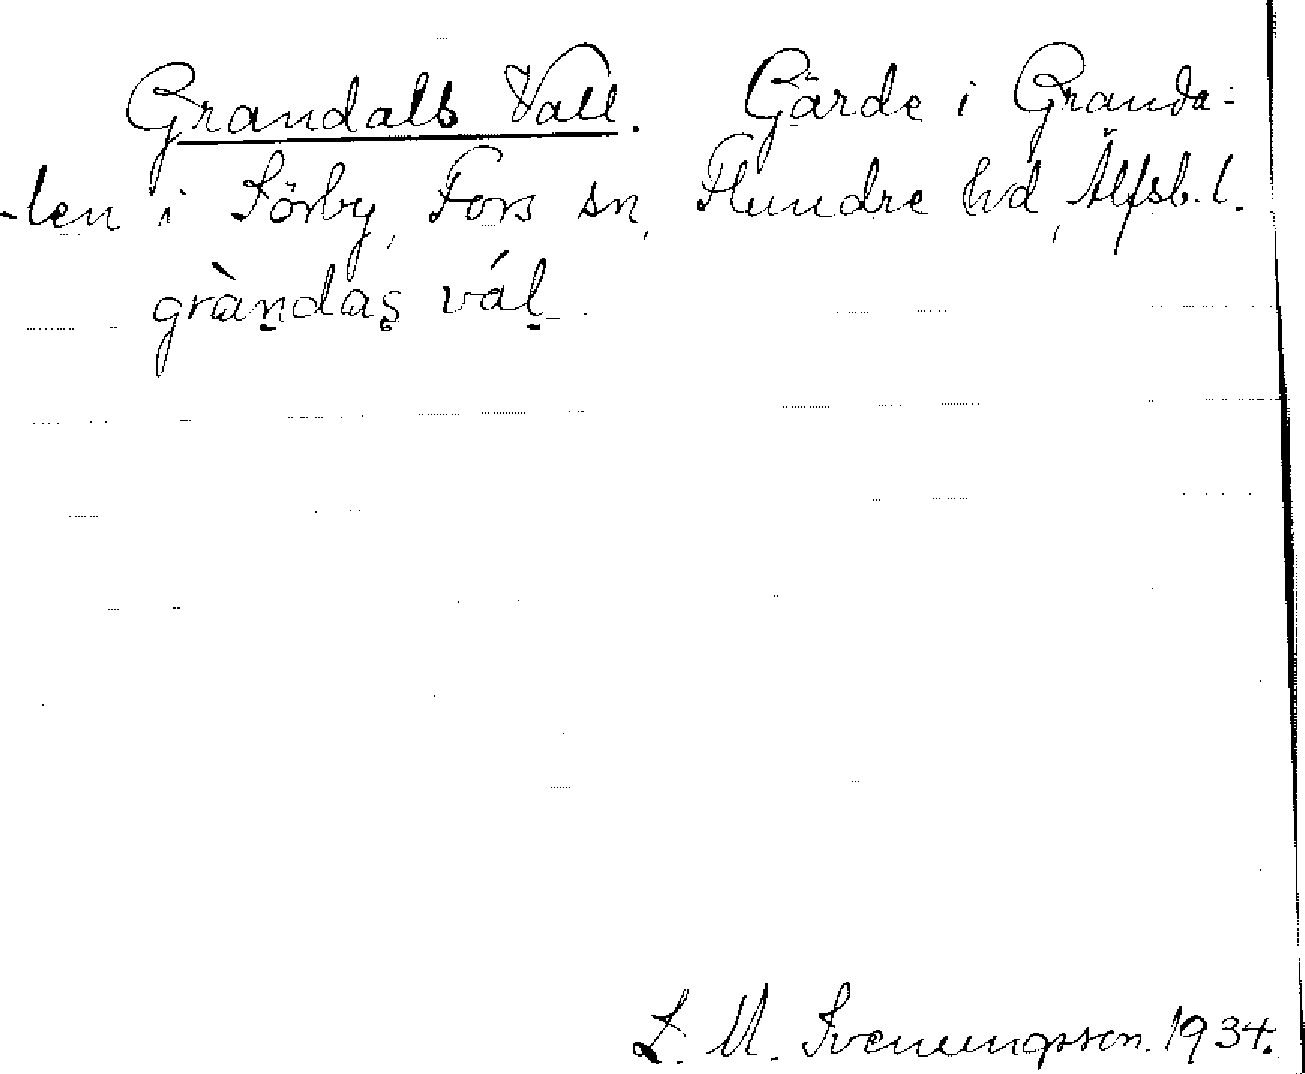 Grandals Vall. Gärde i Granda-
-len i Sörby, Fors sn, Flundre hd, Älfsb. l.
gràndas vál.
L. M. Svenungsson. 1934.